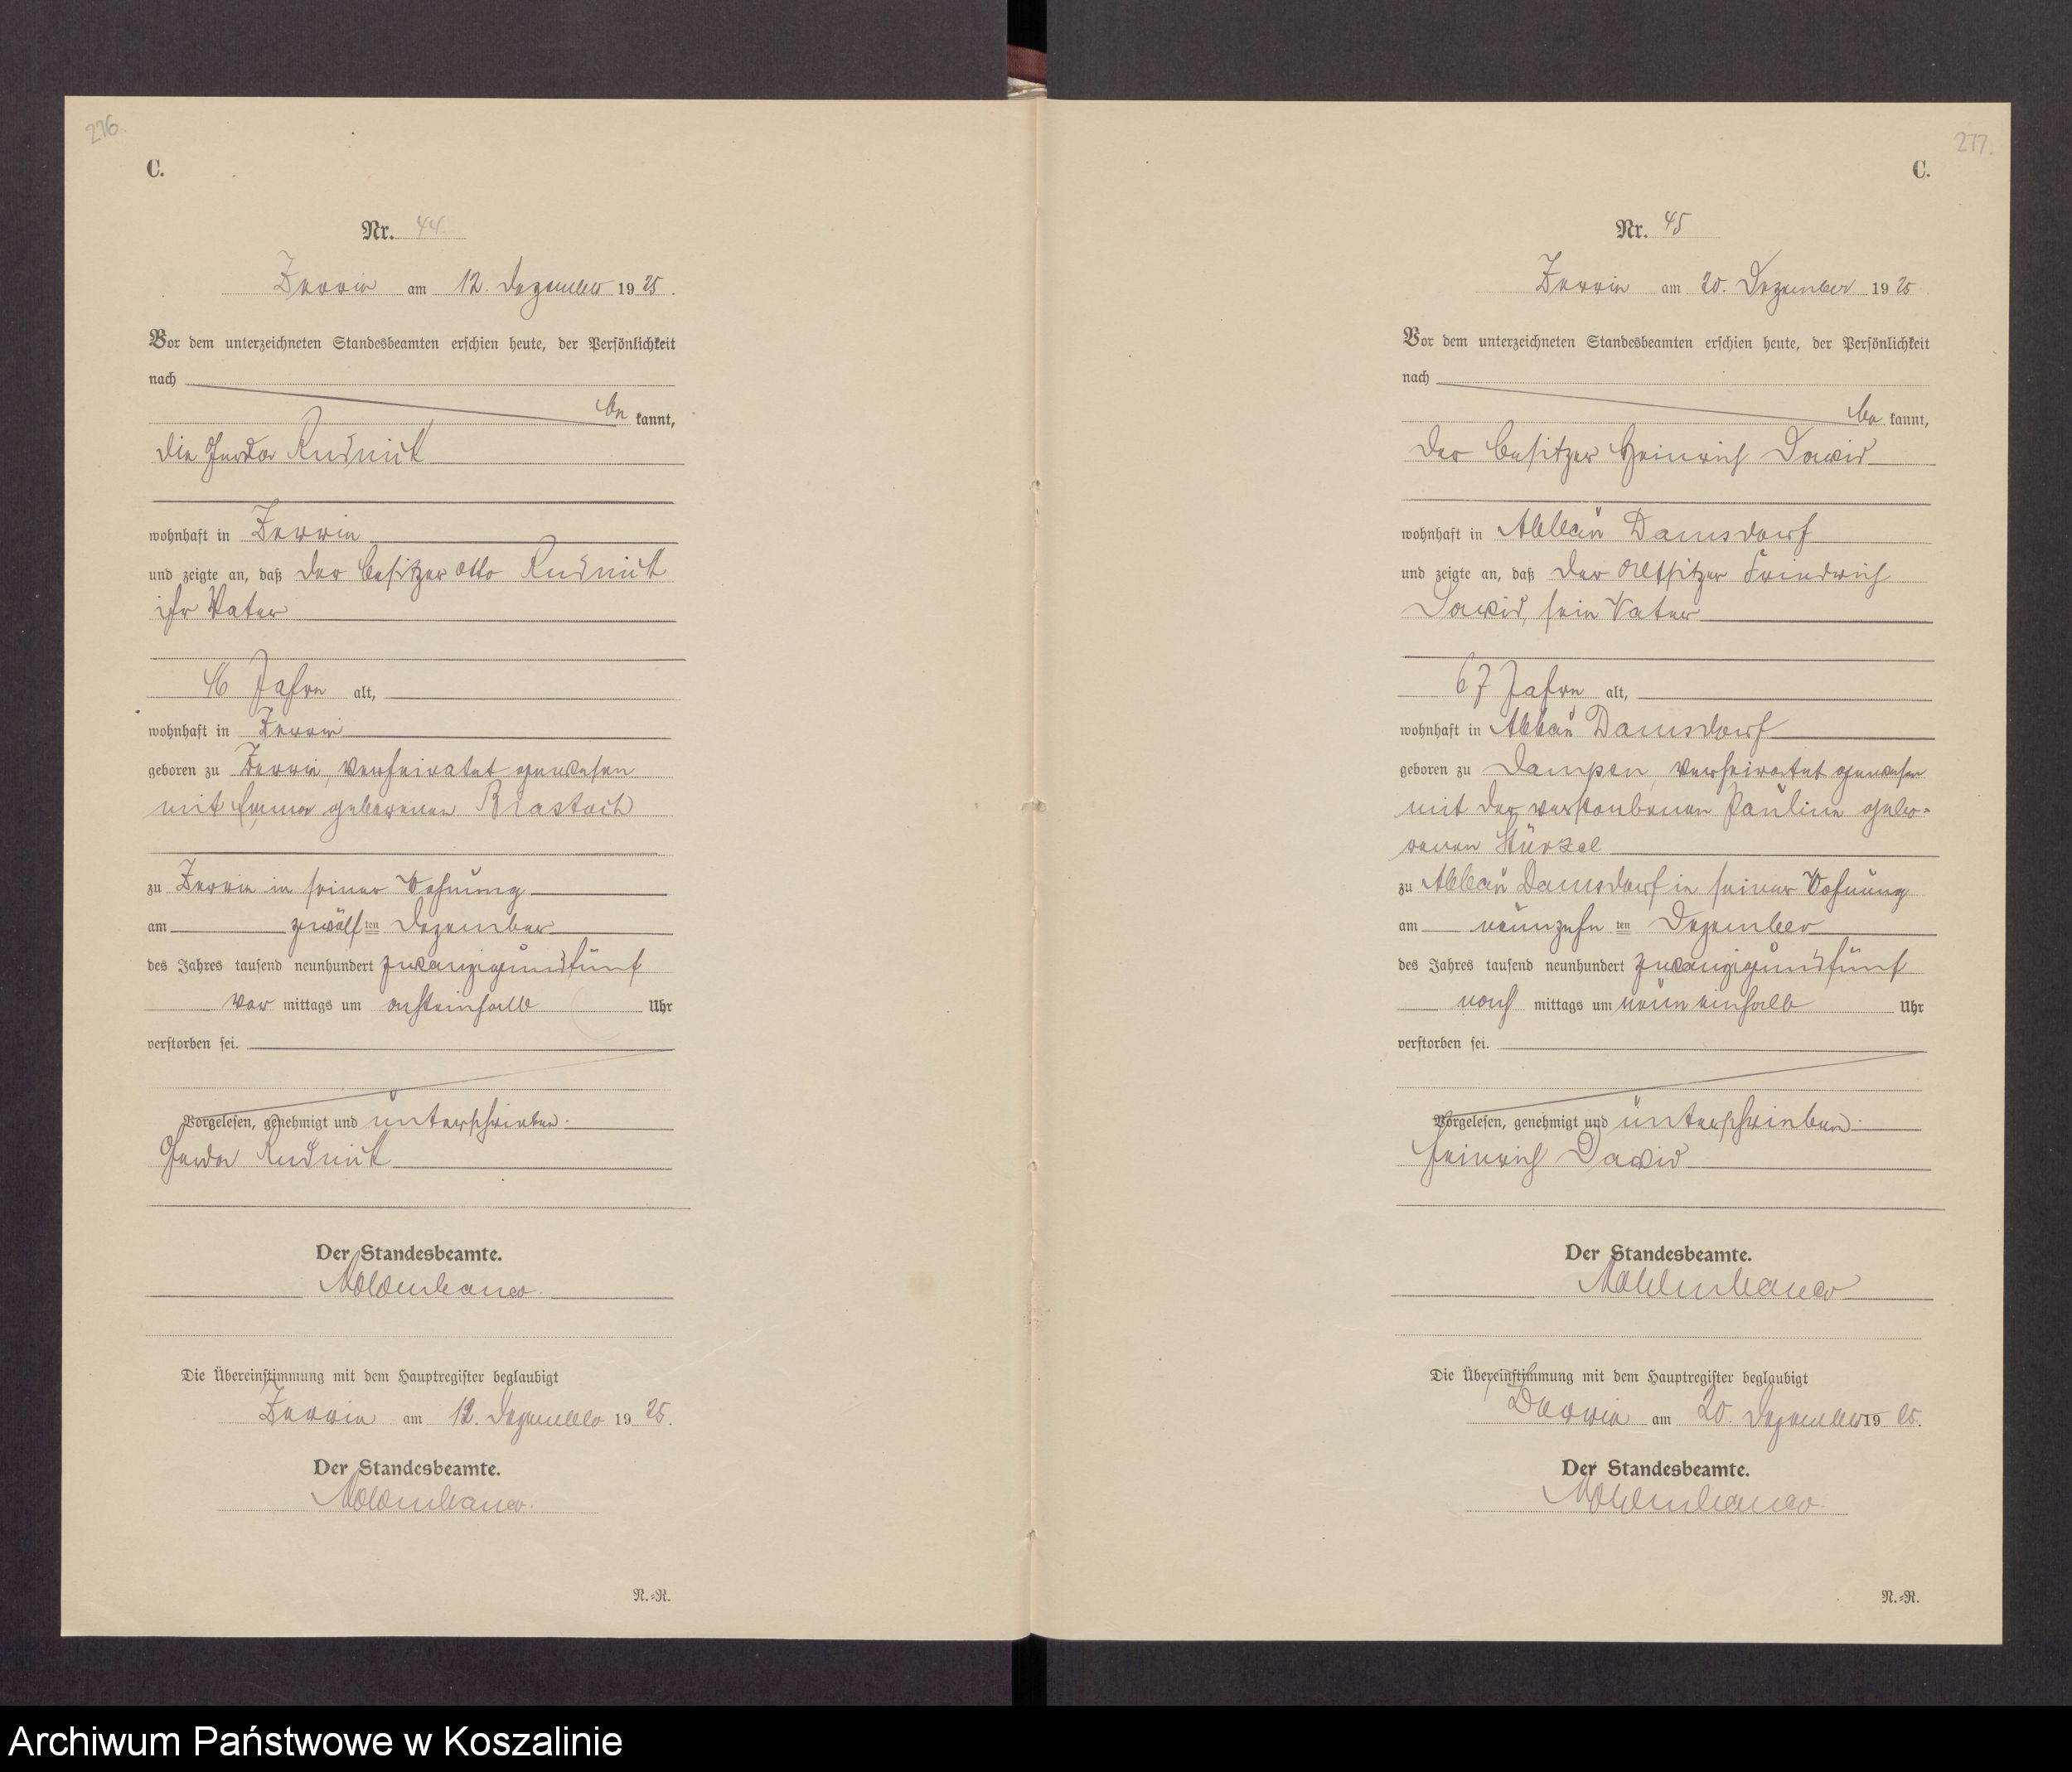 276.
C.
Nr. 44.
Zerrin am 12. Dezember 1925.
Vor dem unterzeichneten Standesbeamten erschien heute, der Persönlichkeit
nach
be kannt,
die Gerda Rudnick
wohnhaft in Zerrin
und zeigte an, daß der Besitzer Otto Rudnick
ihr Vater
46 Jahre alt,
wohnhaft in Zerrin
geboren zu Zerrin, verheiratet gewesen
mit Emma geborenen
zu Zerrin in seiner Wohnung
am zwölf ten Dezember
des Jahres tausend neunhundert zwanzigundfünf
vor mittags um achteinhalb Uhr
verstorben sei.
Vorgelesen, genehmigt und unterschrieben.
Gerda Rudnick
Der Standesbeamte.
Moldenhauer.
Die Übereinstimmung mit dem Hauptregister beglaubigt
Zerrin am 12. Dezember 1925.
Der Standesbeamte.
Moldenhauer.
N.=R.
277.
C.
Nr. 45
Zerrin am 20. Dezember 1925
Vor dem unterzeichneten Standesbeamten erschien heute, der Persönlichkeit
nach
be kannt,
der Besitzer Heinrich Dawid
wohnhaft in Abbau Damsdorf
und zeigte an, daß der Altsitzer Friedrich
Dawid, sein Vater
67 Jahre alt,
wohnhaft in Abbau Damsdorf
geboren zu Dampen, verheiratet gewesen
mit der verstorbenen Pauline gebo-
renen
zu Abbau Damsdorf in seiner Wohnung
am neunzehn ten Dezember
des Jahres tausend neunhundert zwanzigundfünf
nach mittags um neun einhalb Uhr
verstorben sei.
Vorgelesen, genehmigt und unterschrieben.
Heinrich Dawid
Der Standesbeamte.
Moldenhauer
Die Übereinstimmung mit dem Hauptregister beglaubigt
Zerrin am 20. Dezember 1925.
Der Standesbeamte.
Moldenhauer.
N.=R.
Archiwum Państwowe w Koszalinie